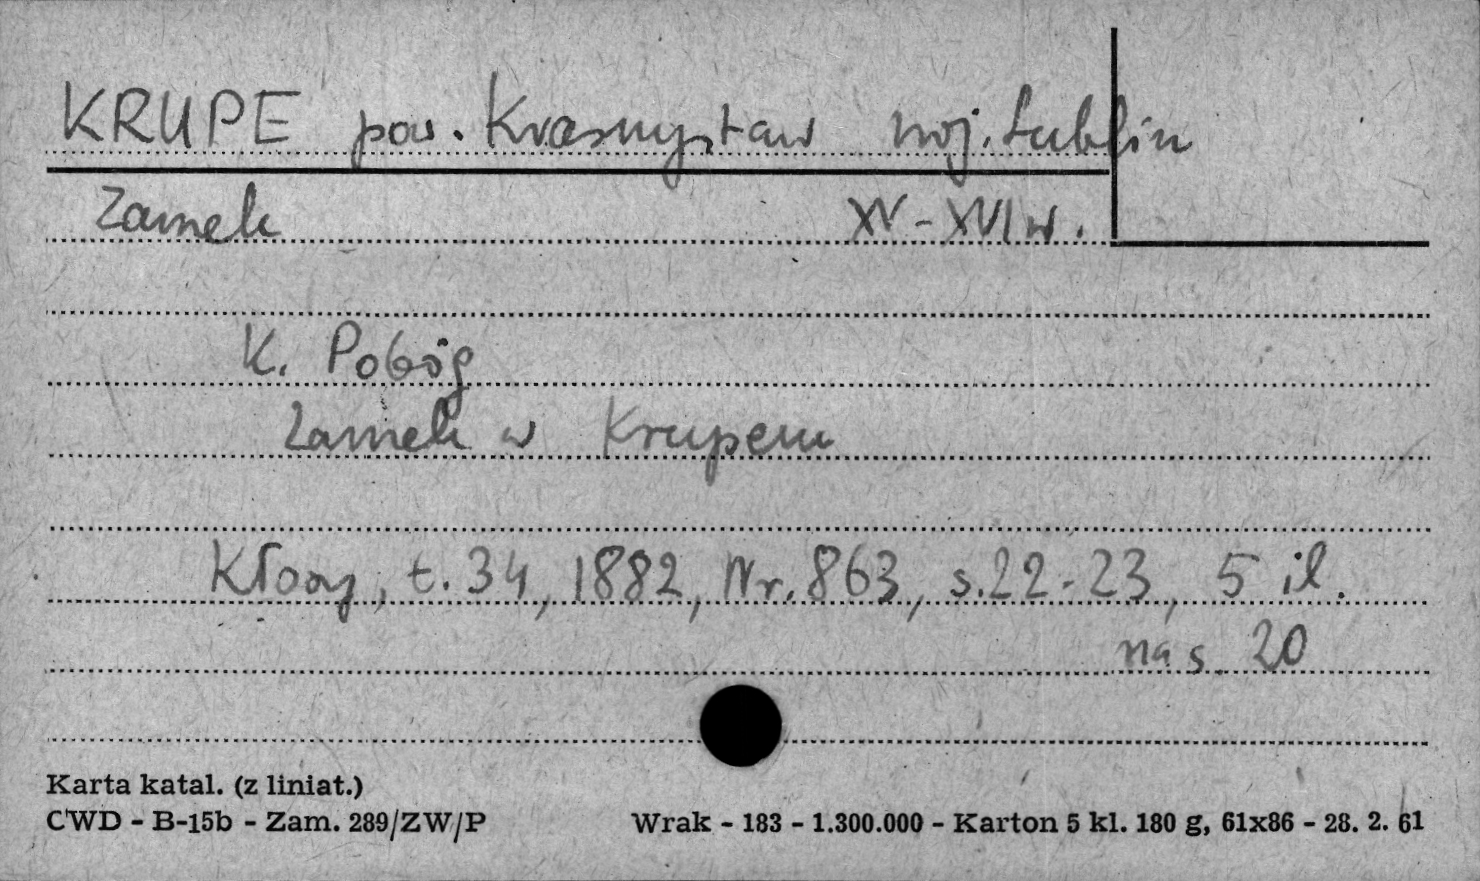 KRUPE pow. Krasnystaw woj. Lublin
Zamek XV-XVI w.
K. Pobóg
Zamek w Krupem
Kłosy, t. 34, 1882, Nr. 863, s. 22-23, 5 il.
na s. 20
Karta katal. (z liniat.)
CWD - B-15b - Zam. 289/ZW/P Wrak - 183 - 1.300.000 - Karton 5 kl. 180 g, 61x86 - 28. 2. 61